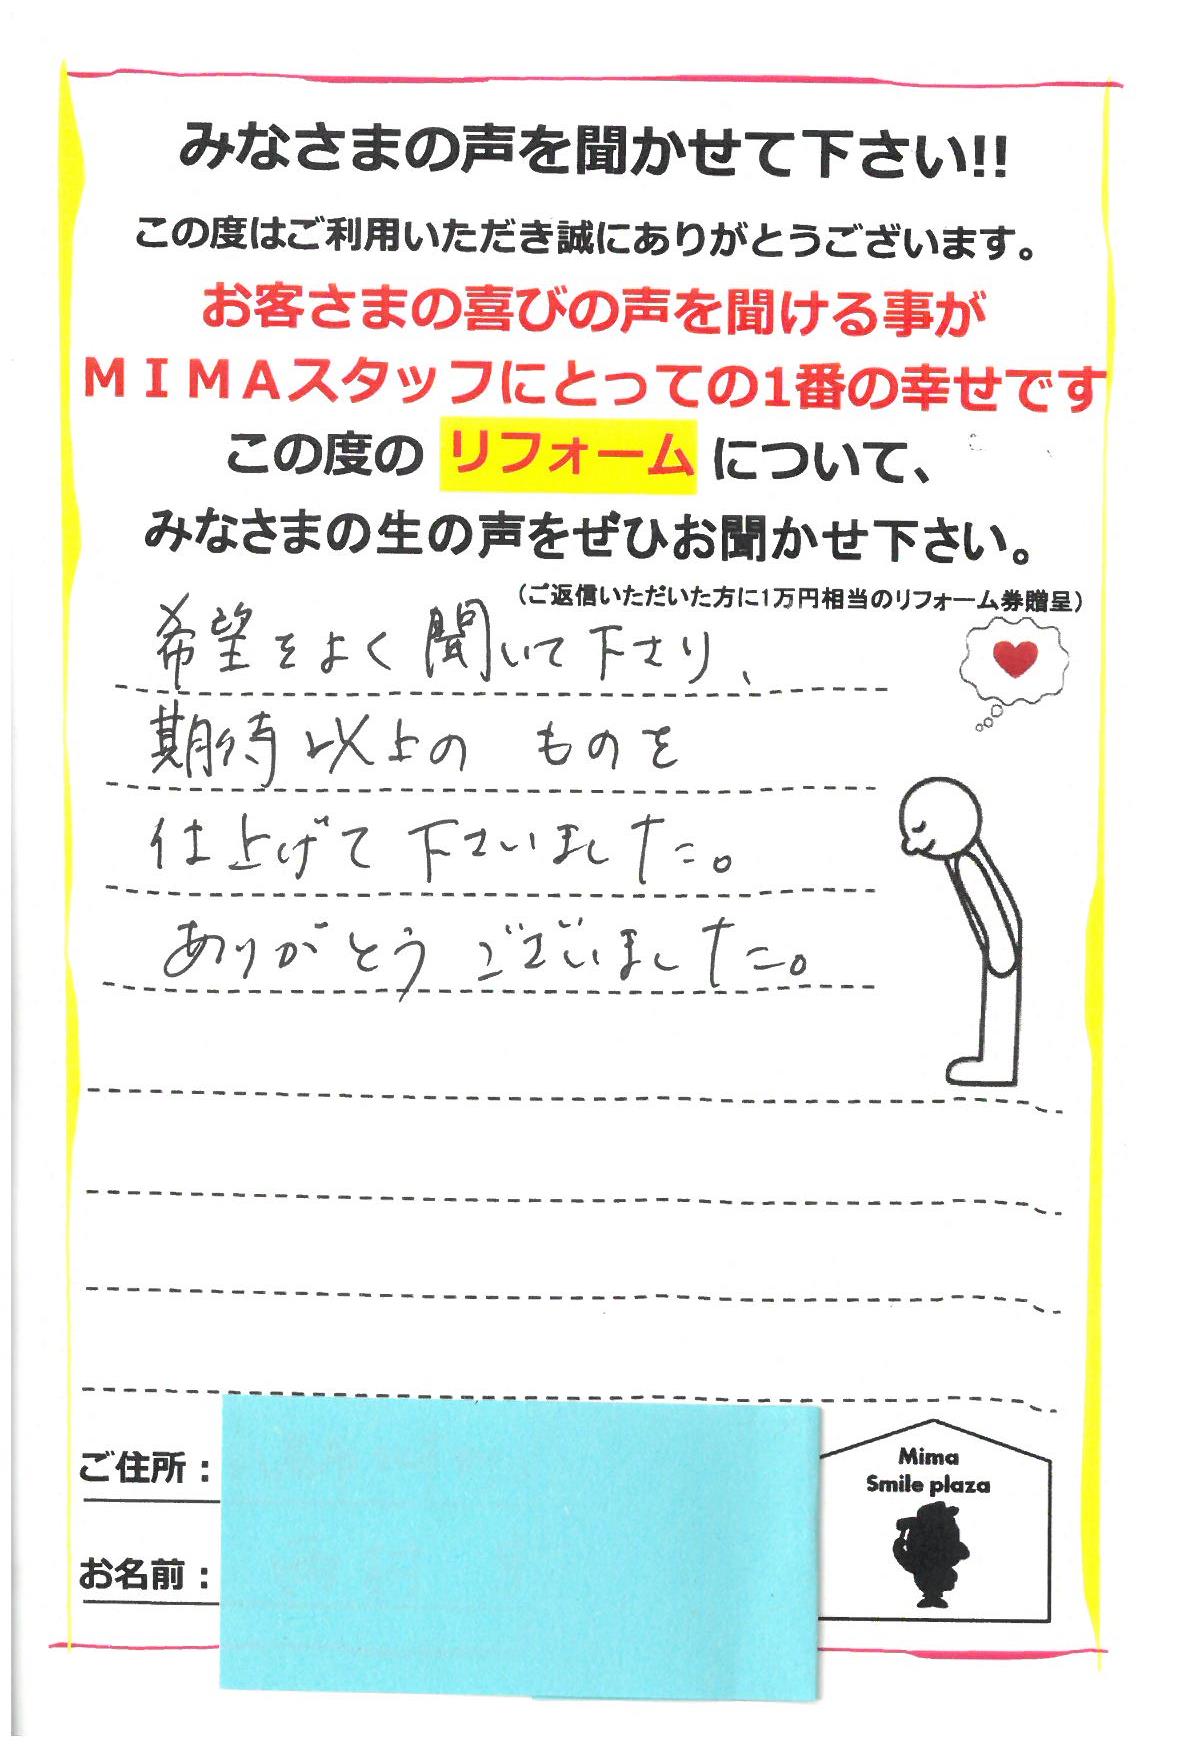 みなさまの声を聞かせて下さい!!
この度はご利用いただき誠にありがとうございます。
お客さまの喜びの声を聞ける事が
ＭＩＭＡスタッフにとっての1番の幸せです
この度の リフォーム について、
みなさまの生の声をぜひお聞かせ下さい。
（ご返信いただいた方に1万円相当のリフォーム券贈呈）
希望をよく聞いて下さり、
期待以上の ものを
仕上げて下さいました。
ありがとうございました。
ご住所：
Mima
Smile plaza
お名前：